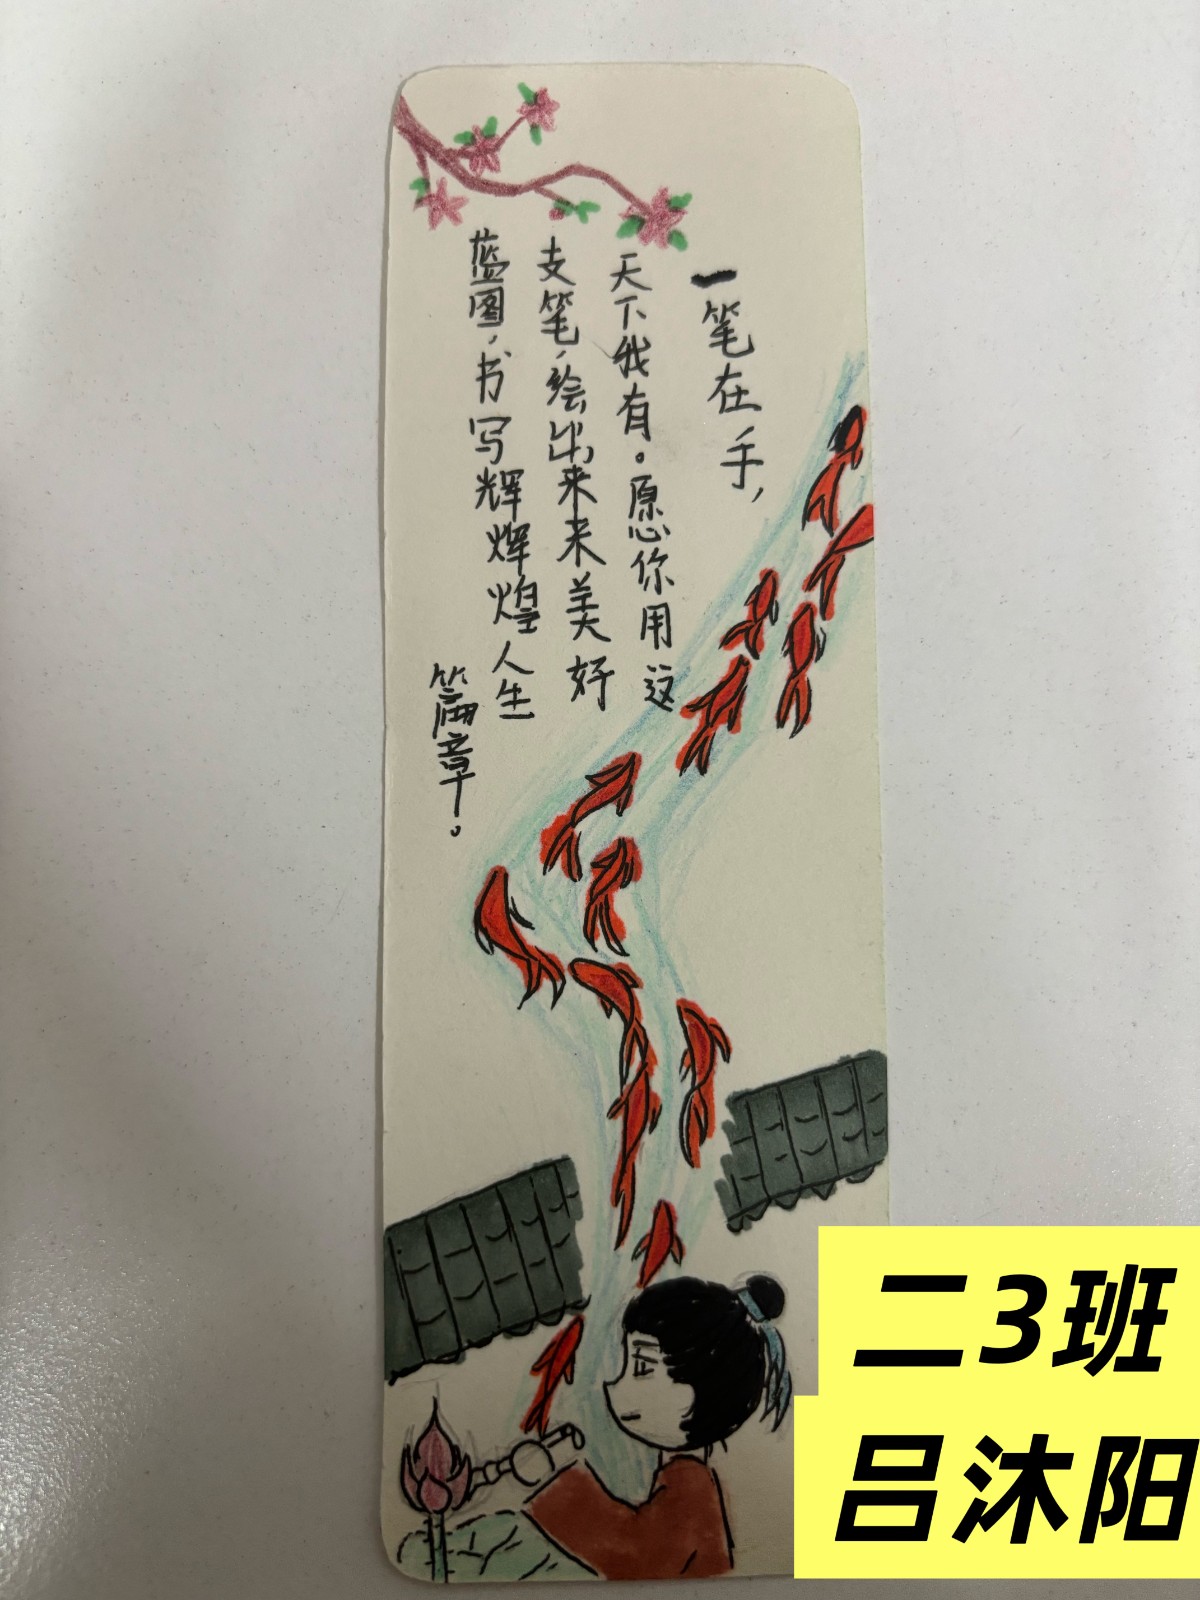 一笔在手，
天下我有。愿你用这
支笔，绘出来来美好
蓝图，书写辉煇煌人生
篇章。
二3班
吕沐阳